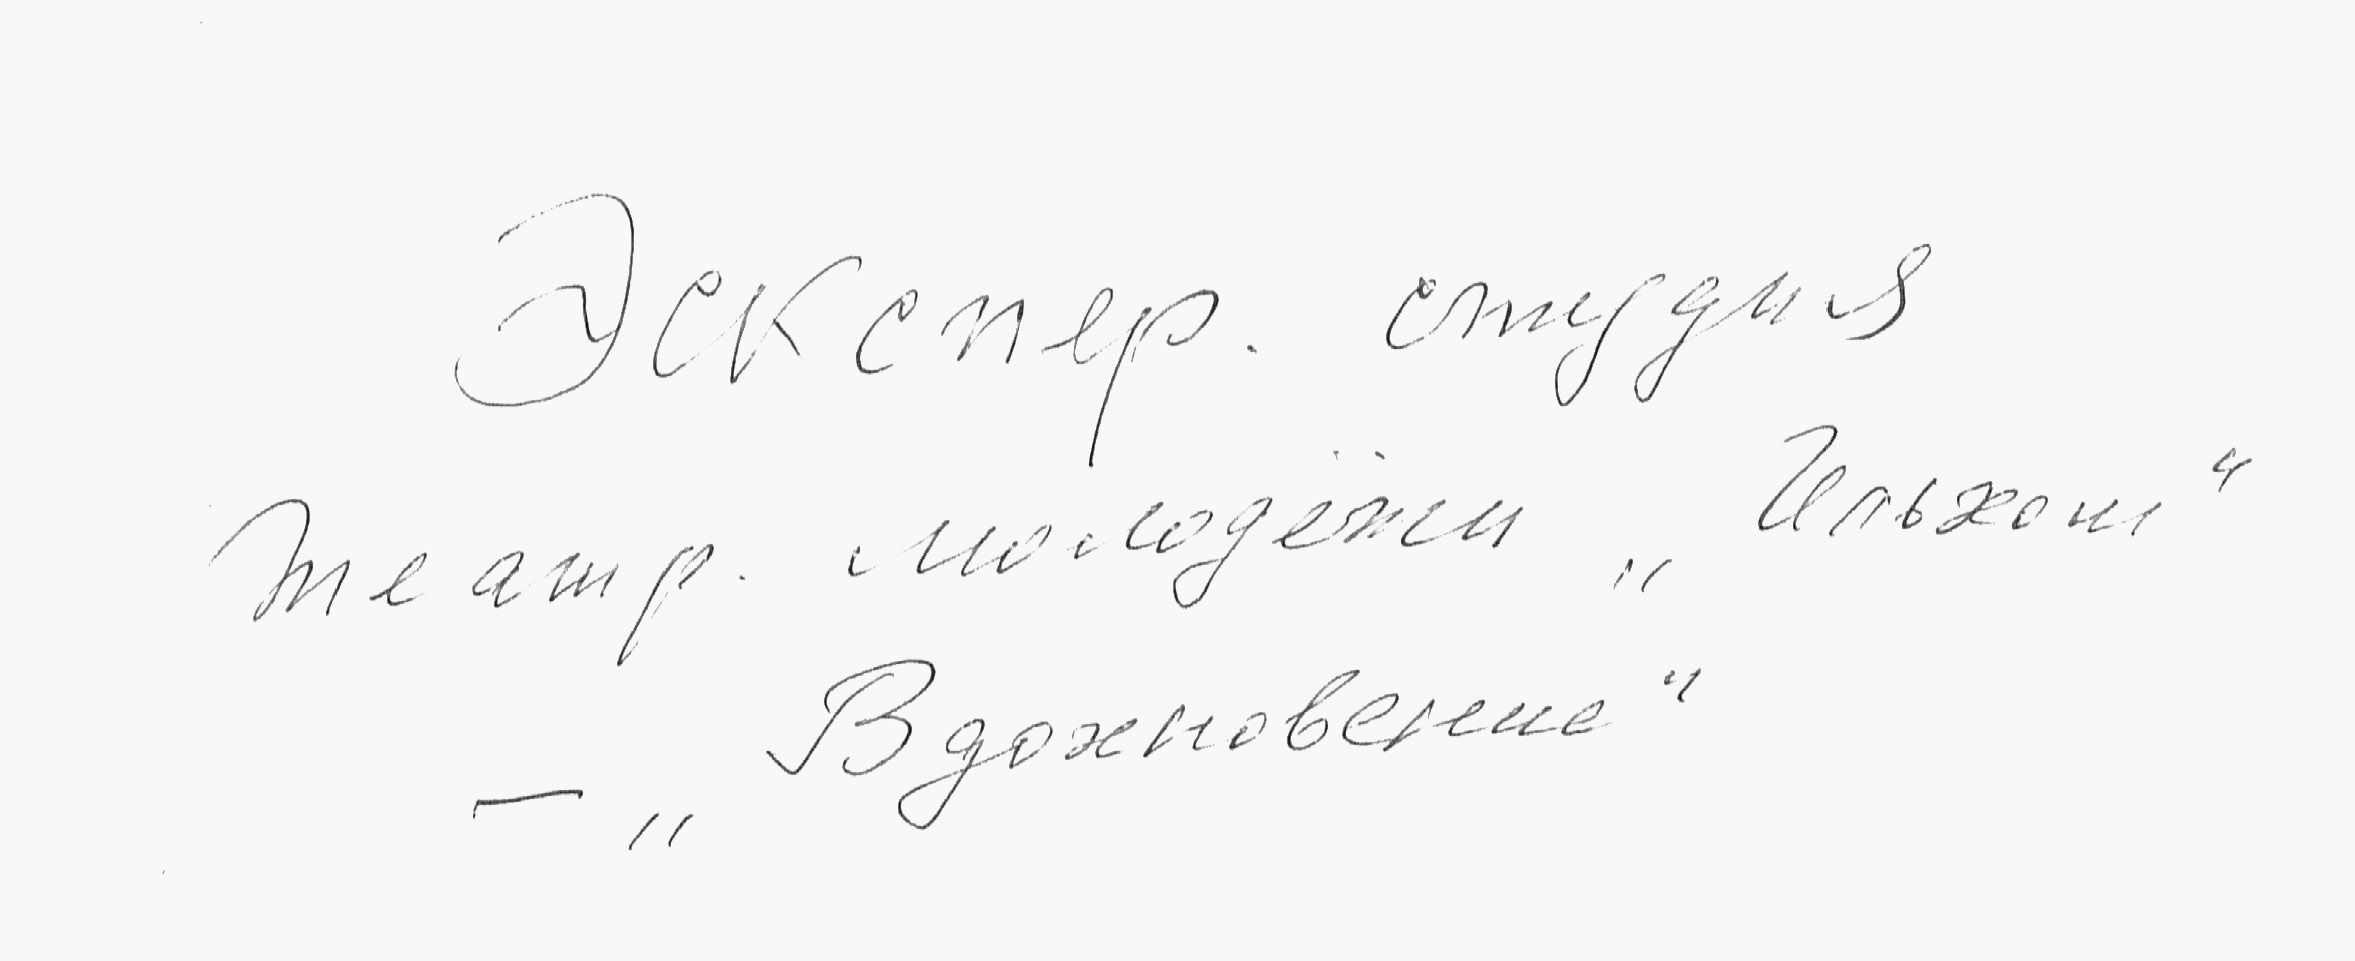 Экспер. студия
театр. молодёжи „Ильхом“
– „Вдохновение“